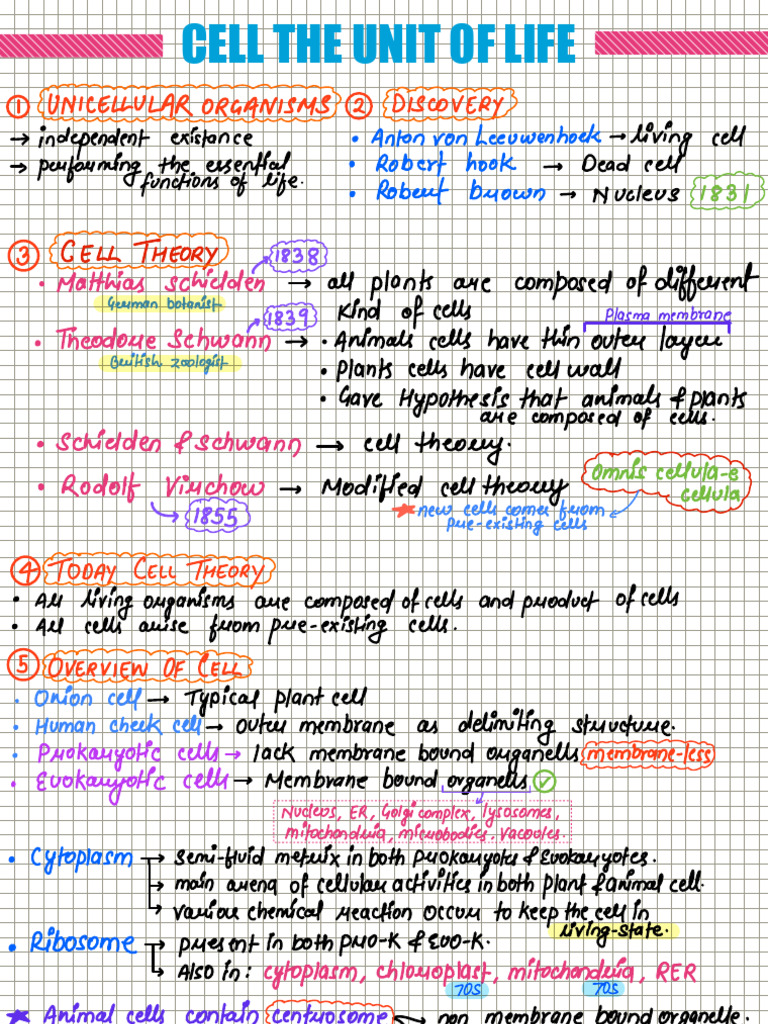 CELL THE UNIT OF LIFE
① UNICELLULAR ORGANISMS
→ independent existance
→ performing the essential
functions of life.
② DISCOVERY
• Anton von Leeuwenhoek → living cell
• Robert hook → Dead cell
• Robert brown → Nucleus 1831
③ CELL THEORY
1838
• Matthias Schielden → all plants are composed of different
German botanist
kind of cells
1839
Plasma membrane
• Theodore Schwann → • Animals cells have thin outer layer
British zoologist
• Plants cells have cell wall
• Gave Hypothesis that animals & plants
are composed of cells.
• Schielden & Schwann → cell theory.
• Rodolf Virchow → Modified cell theory
Omnis cellula-e
cellula
1855
new cells comes from
pre-existing cells
④ TODAY CELL THEORY
• All living organisms are composed of cells and product of cells
• All cells arise from pre-existing cells.
⑤ OVERVIEW OF CELL
• Onion cell → Typical plant cell
• Human cheek cell → outer membrane as delimiting structure.
• Prokaryotic cells → lack membrane bound organells membrane-less
• Evokaryotic cells → Membrane bound organells
Nucleus, ER, Golgi complex, lysosomes,
mitochondria, microbodies, vacuoles.
• Cytoplasm → semi-fluid metrix in both prokaryotes & Evokaryotes.
→ main arena of cellular activities in both plant & animal cell.
→ various chemical reaction occur to keep the cell in
living-state.
• Ribosome → present in both pro-K & Evo-K.
→ Also in: cytoplasm, chloroplast, mitochondria, RER
70S 70S
★ Animal cells contain centrosome → non membrane bound organelle.